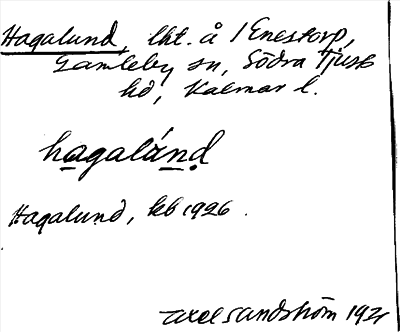 Hagalund, lht. å 1 Enestorp,
Gamleby sn, Södra Tjusts
hd, Kalmar l.
hagalánḍ
Hagalund, kb 1926.
Axel Sandström 192